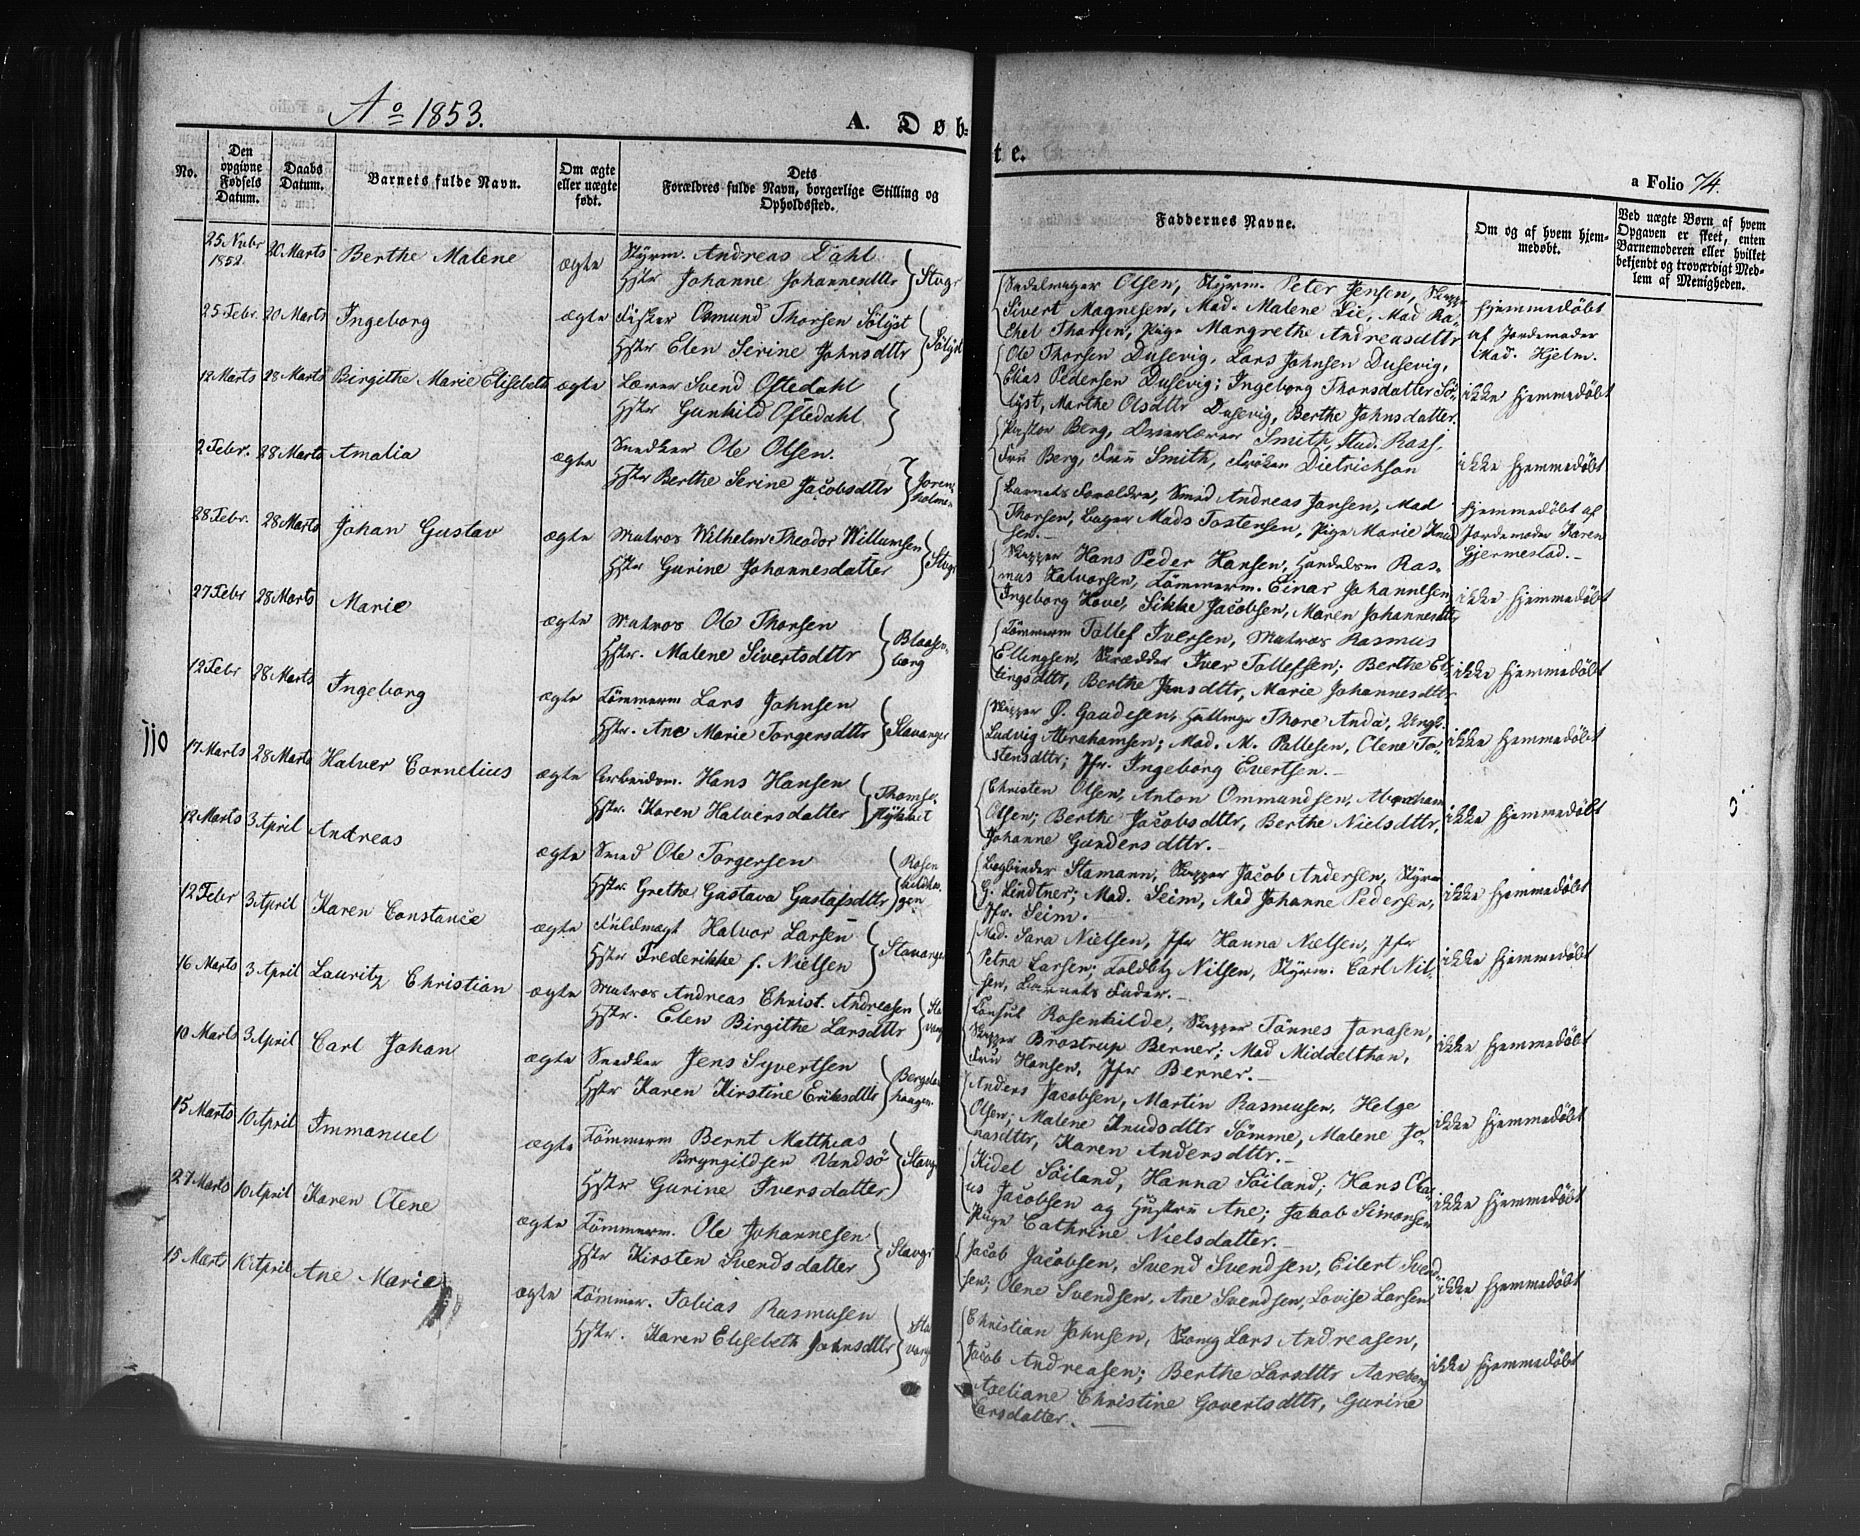 Aº 1853.
A. Døb-
te.
a Folio 74.
No.
Den opgivne Fødsels Datum.
Daabs Datum.
Barnets fulde Navn.
Om ægte eller uægte født.
Dets Forældres fulde Navn, borgerlige Stilling og Opholdssted.
Faddernes Navne.
Om og af hvem hjemmedøbt.
Ved uægte Børn af hvem Opgaven er skeet, enten Barnemoderen eller hvilket bekjendt og troværdigt Medlem af Menigheden.
25 Nvbr 1852 20 Marts Berthe Malene ægte Styrm. Andreas Dahl
Hstr Johanne Johannesdttr Stvgr
Sadelmager Olsen, Styrm. Peter Jensen,
Sivert Magnesen, Mad. Malene Lie, Mad Ra-
chel Thorsen, Pige Margrethe Andreasdttr
Hjemmedøbt
af Jordemoder
Mad. Hjelm.
25 Febr. 20 Marts Ingeborg ægte Fisker Osmund Thorsen Sølyst
Hstr Elen Serine Johnsdttr Sølyst
Ole Thorsen Dusevig, Lars Johnsen Dusevig,
Elias Pedersen Dusevig; Ingeborg Thorsdatter Sø-
lyst, Marthe Olsdttr Dusevig, Berthe Johnsdatter.
ikke hjemmedøbt
12 Marts 28 Marts Birgithe Marie Elisebeth ægte Lærer Svend Oftedahl
Hstr Gunhild Oftedahl
Pastor Berg, Overlærer Smith, Stud. Rass,
Fru Berg, Fru Smith, Frøken Dietrichson
ikke hjemmedøbt
2 Febr. 28 Marts Amalia ægte Snedker Ole Olsen.
Hstr Berthe Serine Jacobsdttr Joren-
holmen
Barnets Forældre, Smed Andreas Jansen, Mad
Thorsen, Bager Mads Tostensen, Pige Marie Knud
sen.-
Hjemmedøbt af
Jordemoder Karen
Gjermestad.-
28 Febr. 28 Marts Johan Gustav ægte Matros Wilhelm Theodor Willumsen
Hstr Gurine Johannesdatter Stvgr
Skipper Hans Peder Hansen, Handelsm Ras-
mus Halvorsen, Tømmerm. Einar Johannesen,
Ingeborg Hove, Sikke Jacobsen, Maren Johannesdttr
ikke hjemmedøbt
27 Febr 28 Marts Marie ægte Matros Ole Thorsen
Hstr. Malene Sivertsdttr Blaasen-
borg
Tømmerm Tollef Iversen, Matros Rasmus
Ellingsen, Skrædder Iver Tollefsen; Berthe El-
lingsdttr, Berthe Jensdttr, Marie Johannesdttr
ikke hjemmedøbt
12 Febr 28 Marts Ingeborg ægte Tømmerm Lars Johnsen
Hstr. Ane Marie Torgersdttr Stavanger
Skipper Ø. Gaudesen, Thore Anda, Ungk.
Ludvig Abrahamsen; Mad. M. Pallesen, Olene To-
stensdttr; Jfr. Ingeborg Evertsen.-
ikke hjemmedøbt
110
17 Marts 28 Marts Halver Cornelius ægte Arbeidsm. Hans Hansen
Hstr. Karen Halversdatter Thomse-
stykket
Christen Olsen, Anton Ommundsen, Abraham
Olsen; Berthe Jacobsdttr, Berthe Nielsdttr,
Johanne Gundersdttr.-
ikke hjemmedøbt
12 Marts 3 April Andreas ægte Smed Ole Torgersen
Hstr. Grethe Gustava Gustafsdttr Rosen
kildha-
gen
Bogbinder Stamann, Skipper Jacob Andersen, Styrm
G. Lindtner; Mad. Seim, Mad Johanne Pedersen,
Jfr. Seim.-
ikke hjemmedøbt
12 Febr 3 April Karen Constance ægte Fuldmægt Halvor Larsen
Hstr Frederikke f. Nielsen Stavanger
Mad. Sara Nielsen, Jfr Hanna Nielsen, Jfr
Petna Larsen; Toldbtj Nilsen, Styrm. Carl Nil-
sen, Barnets Fader.-
ikke hjemmedøbt
16 Marts 3 April Lauritz Christian ægte Matros Andreas Christ. Andreasen
Hstr. Elen Birgithe Larsdttr Sta
vang
Consul Rosenkilde, Skipper Tønnes Jonasen,
Skipper Brostrup Berner; Mad Middelthon,
Fru Hansen, Jfr Berner.-
ikke hjemmedøbt
10 Marts 3 April Carl Johan ægte Snedker Jens Syvertsen
Hstr Karen Kirstine Eriksdttr Bergeland
haugen
Anders Jacobsen, Martin Rasmusen, Helge
Olsen; Malene Knudsdttr Sømme, Malene Jo-
nasdttr, Karen Andersdttr.-
ikke hjemmedøbt
15 Marts 10 April Immanuel ægte Tømmerm Bernt Matthias
Bryngildsen Vandsø
Hstr Gurine Iversdatter Stavgr
Kidel Søiland, Hanna Søiland; Hans Cla-
us Jacobsen og Hustru Ane; Jakob Simonsen
Pige Cathrine Nielsdatter.-
ikke hjemmedøbt
27 Marts 10 April Karen Olene ægte Tømmerm. Ole Johannesen
Hstr Kirsten Svendsdatter Stavgr
Jacob Jacobsen, Svend Svendsen, Eilert Svend-
sen; Olene Svendsen, Ane Svendsen, Lovise Larsen
ikke hjemmedøbt
15 Marts 10 April Ane Marie ægte Tømmer. Tobias Rasmusen
Hstr. Karen Elisebeth Johnsdttr Sta
vang
Christian Johnsen, Lars Andreasen,
Jacob Andreasen; Berthe Larsdttr Aareberg
Axeliane Christine Govertsdttr, Gurine
Larsdatter.-
ikke hjemmedøbt